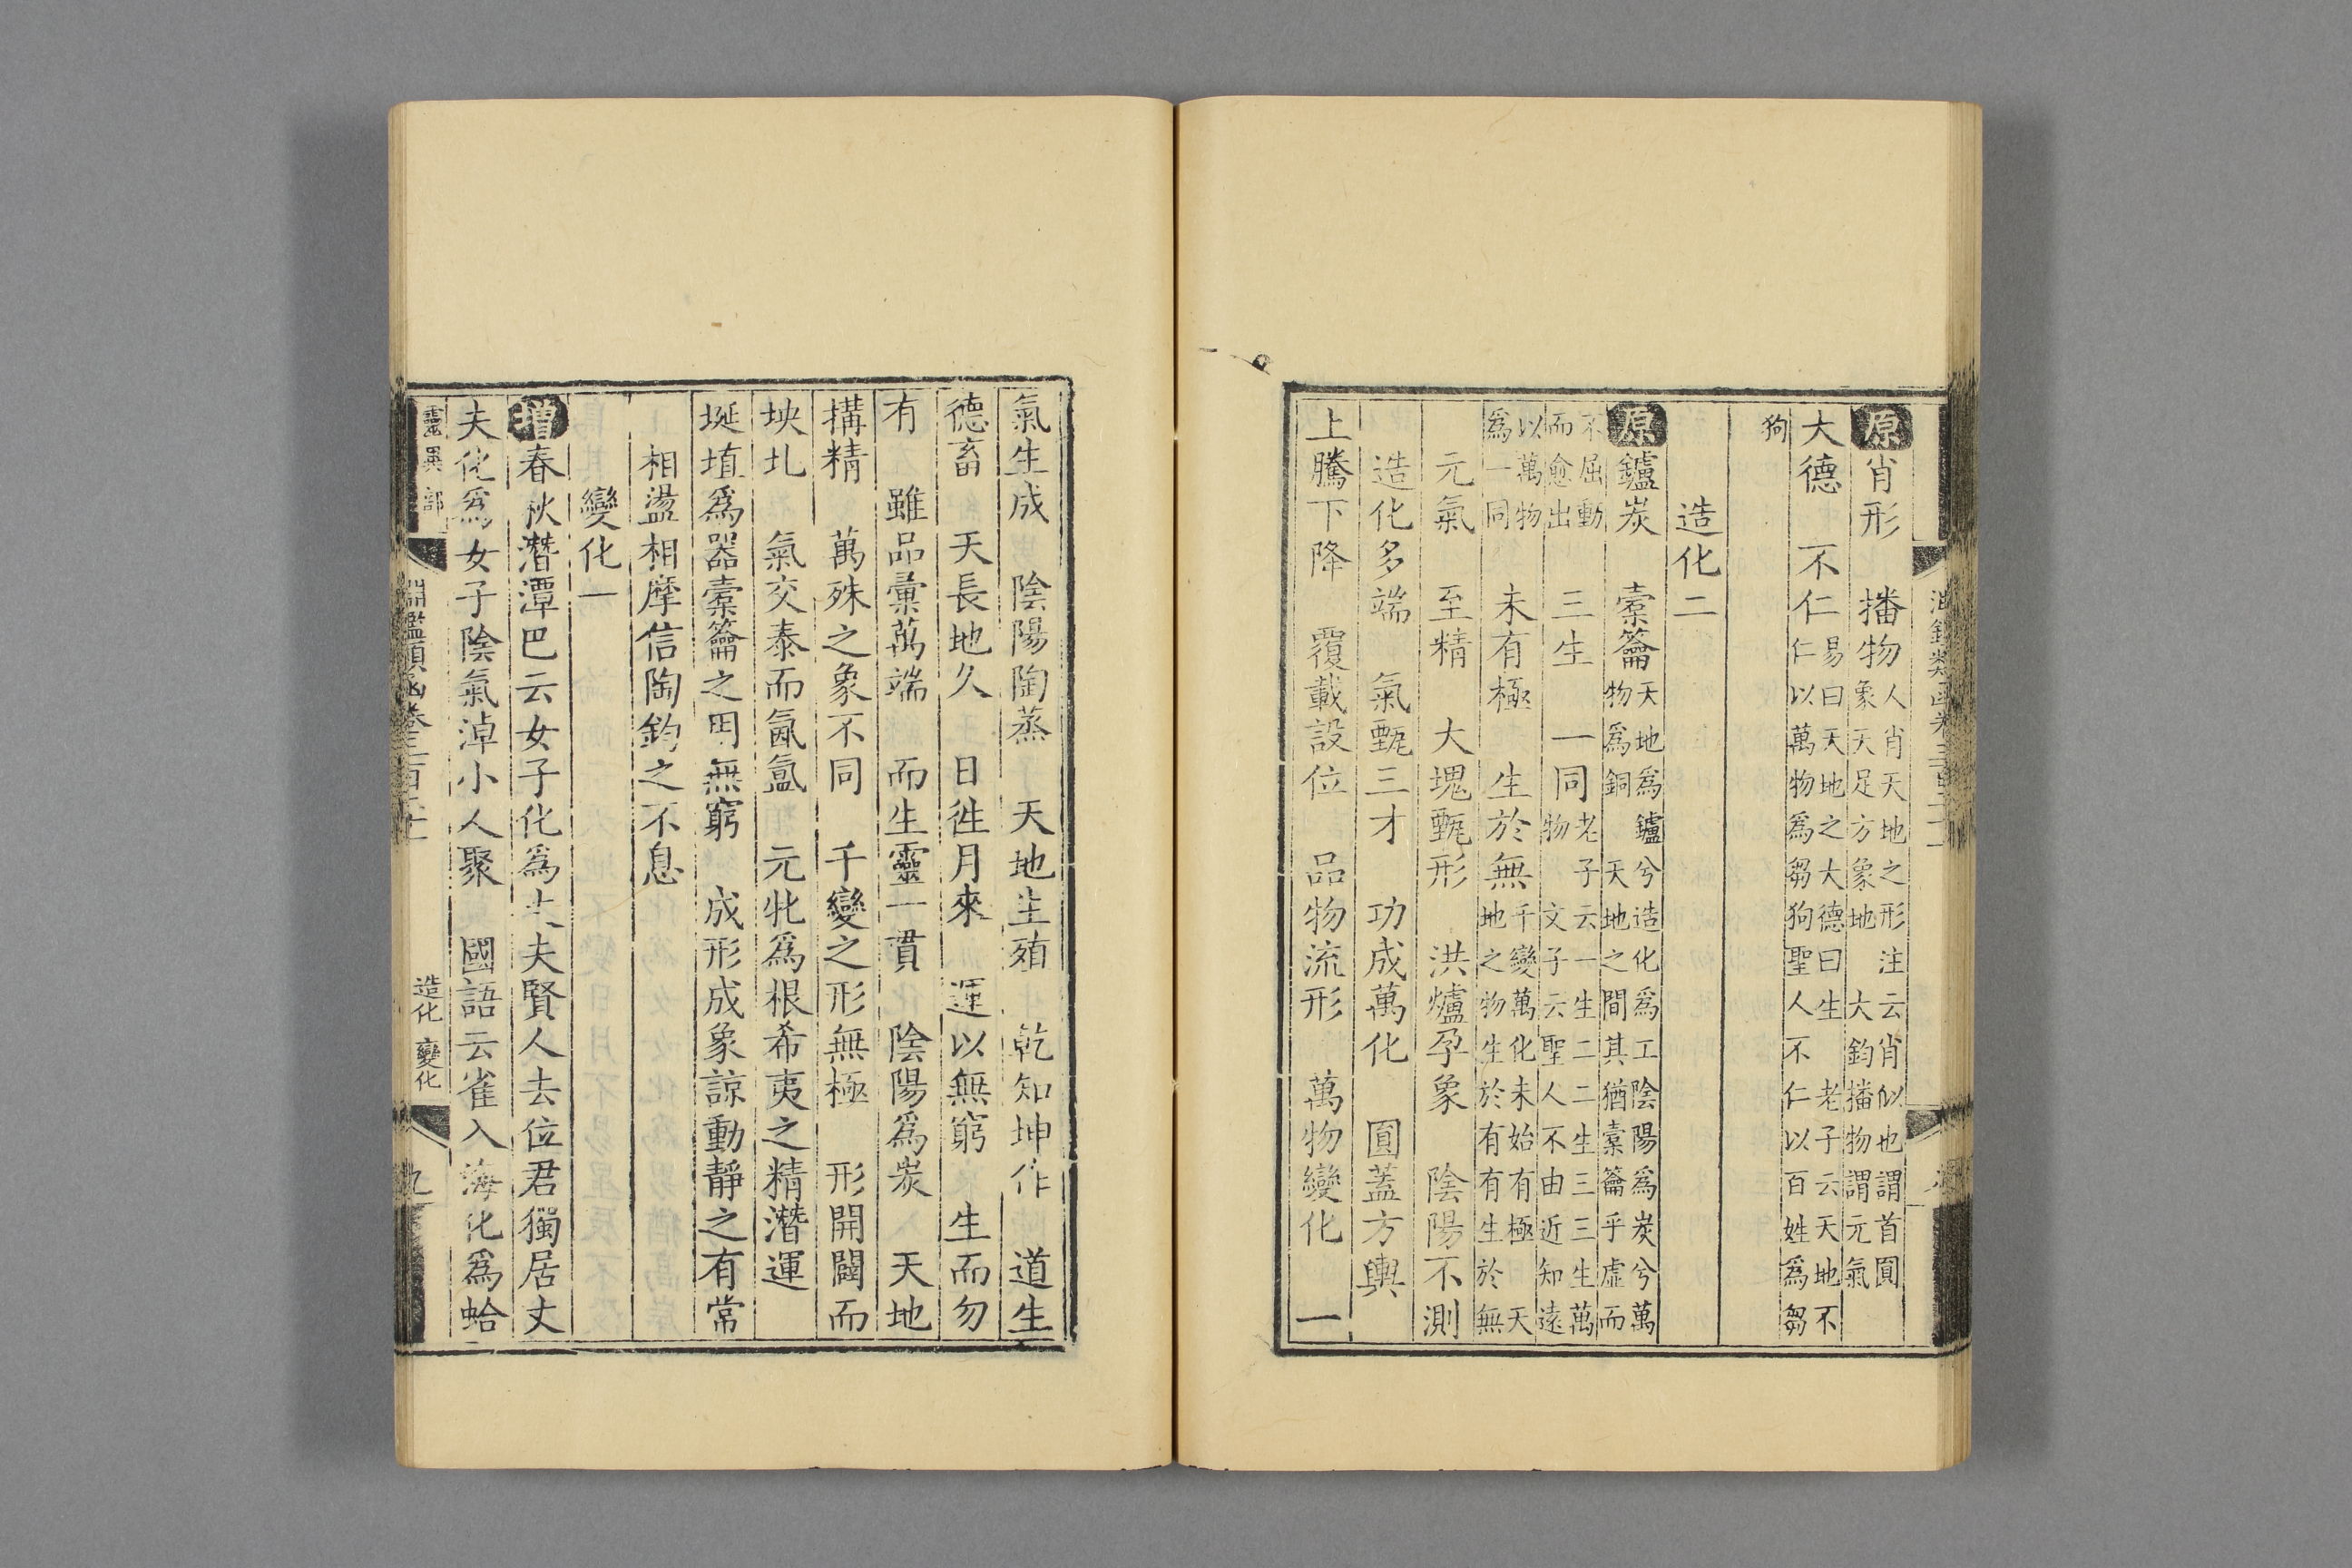 原 肖形 播物 人肖天地之形注云肖似也謂首圓
象天足方象地 大鈞播物謂元氣
大德 不仁 易曰天地之大德曰生 老子云天地不
仁以萬物爲芻狗聖人不仁以百姓爲芻
狗
造化二
原 鑪炭 橐籥 天地爲鑪兮造化爲工陰陽爲炭兮萬
物爲銅 天地之間其猶橐籥乎虛而
不屈動
而愈出
三生 一同 老子云一生二二生三三生萬
物 文子云聖人不由近知遠
以萬物
為一同
未有極 生於無 千變萬化未始有極 天
地之物生於有有生於無
元氣 至精 大塊甄形 洪爐孕象 陰陽不測
造化多端 氣甄三才 功成萬化 圓蓋方輿
上騰下降 覆載設位 品物流形 萬物變化 一
氣生成 陰陽陶蒸 天地生殖 乾知坤作 道生
德畜 天長地久 日徃月來 運以無窮 生而勿
有 雖品彙萬端 而生靈一貫 陰陽爲炭 天地
搆精 萬殊之象不同 千變之形無極 形開闢而
坱圠 氣交泰而氤氳 元牝爲根希夷之精潛運
埏埴爲器橐籥之用無窮 成形成象諒動靜之有常
相盪相摩信陶鈞之不息
變化一
增 春秋潛潭巴云女子化爲丈夫賢人去位君獨居丈
夫化爲女子陰氣淖小人聚 國語云雀入海化爲蛤
靈異部
淵鑑類函卷三百二十一
造化 變化
九